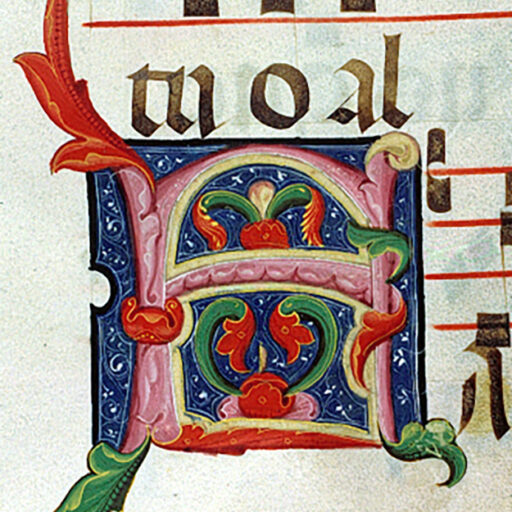 tu o al
A